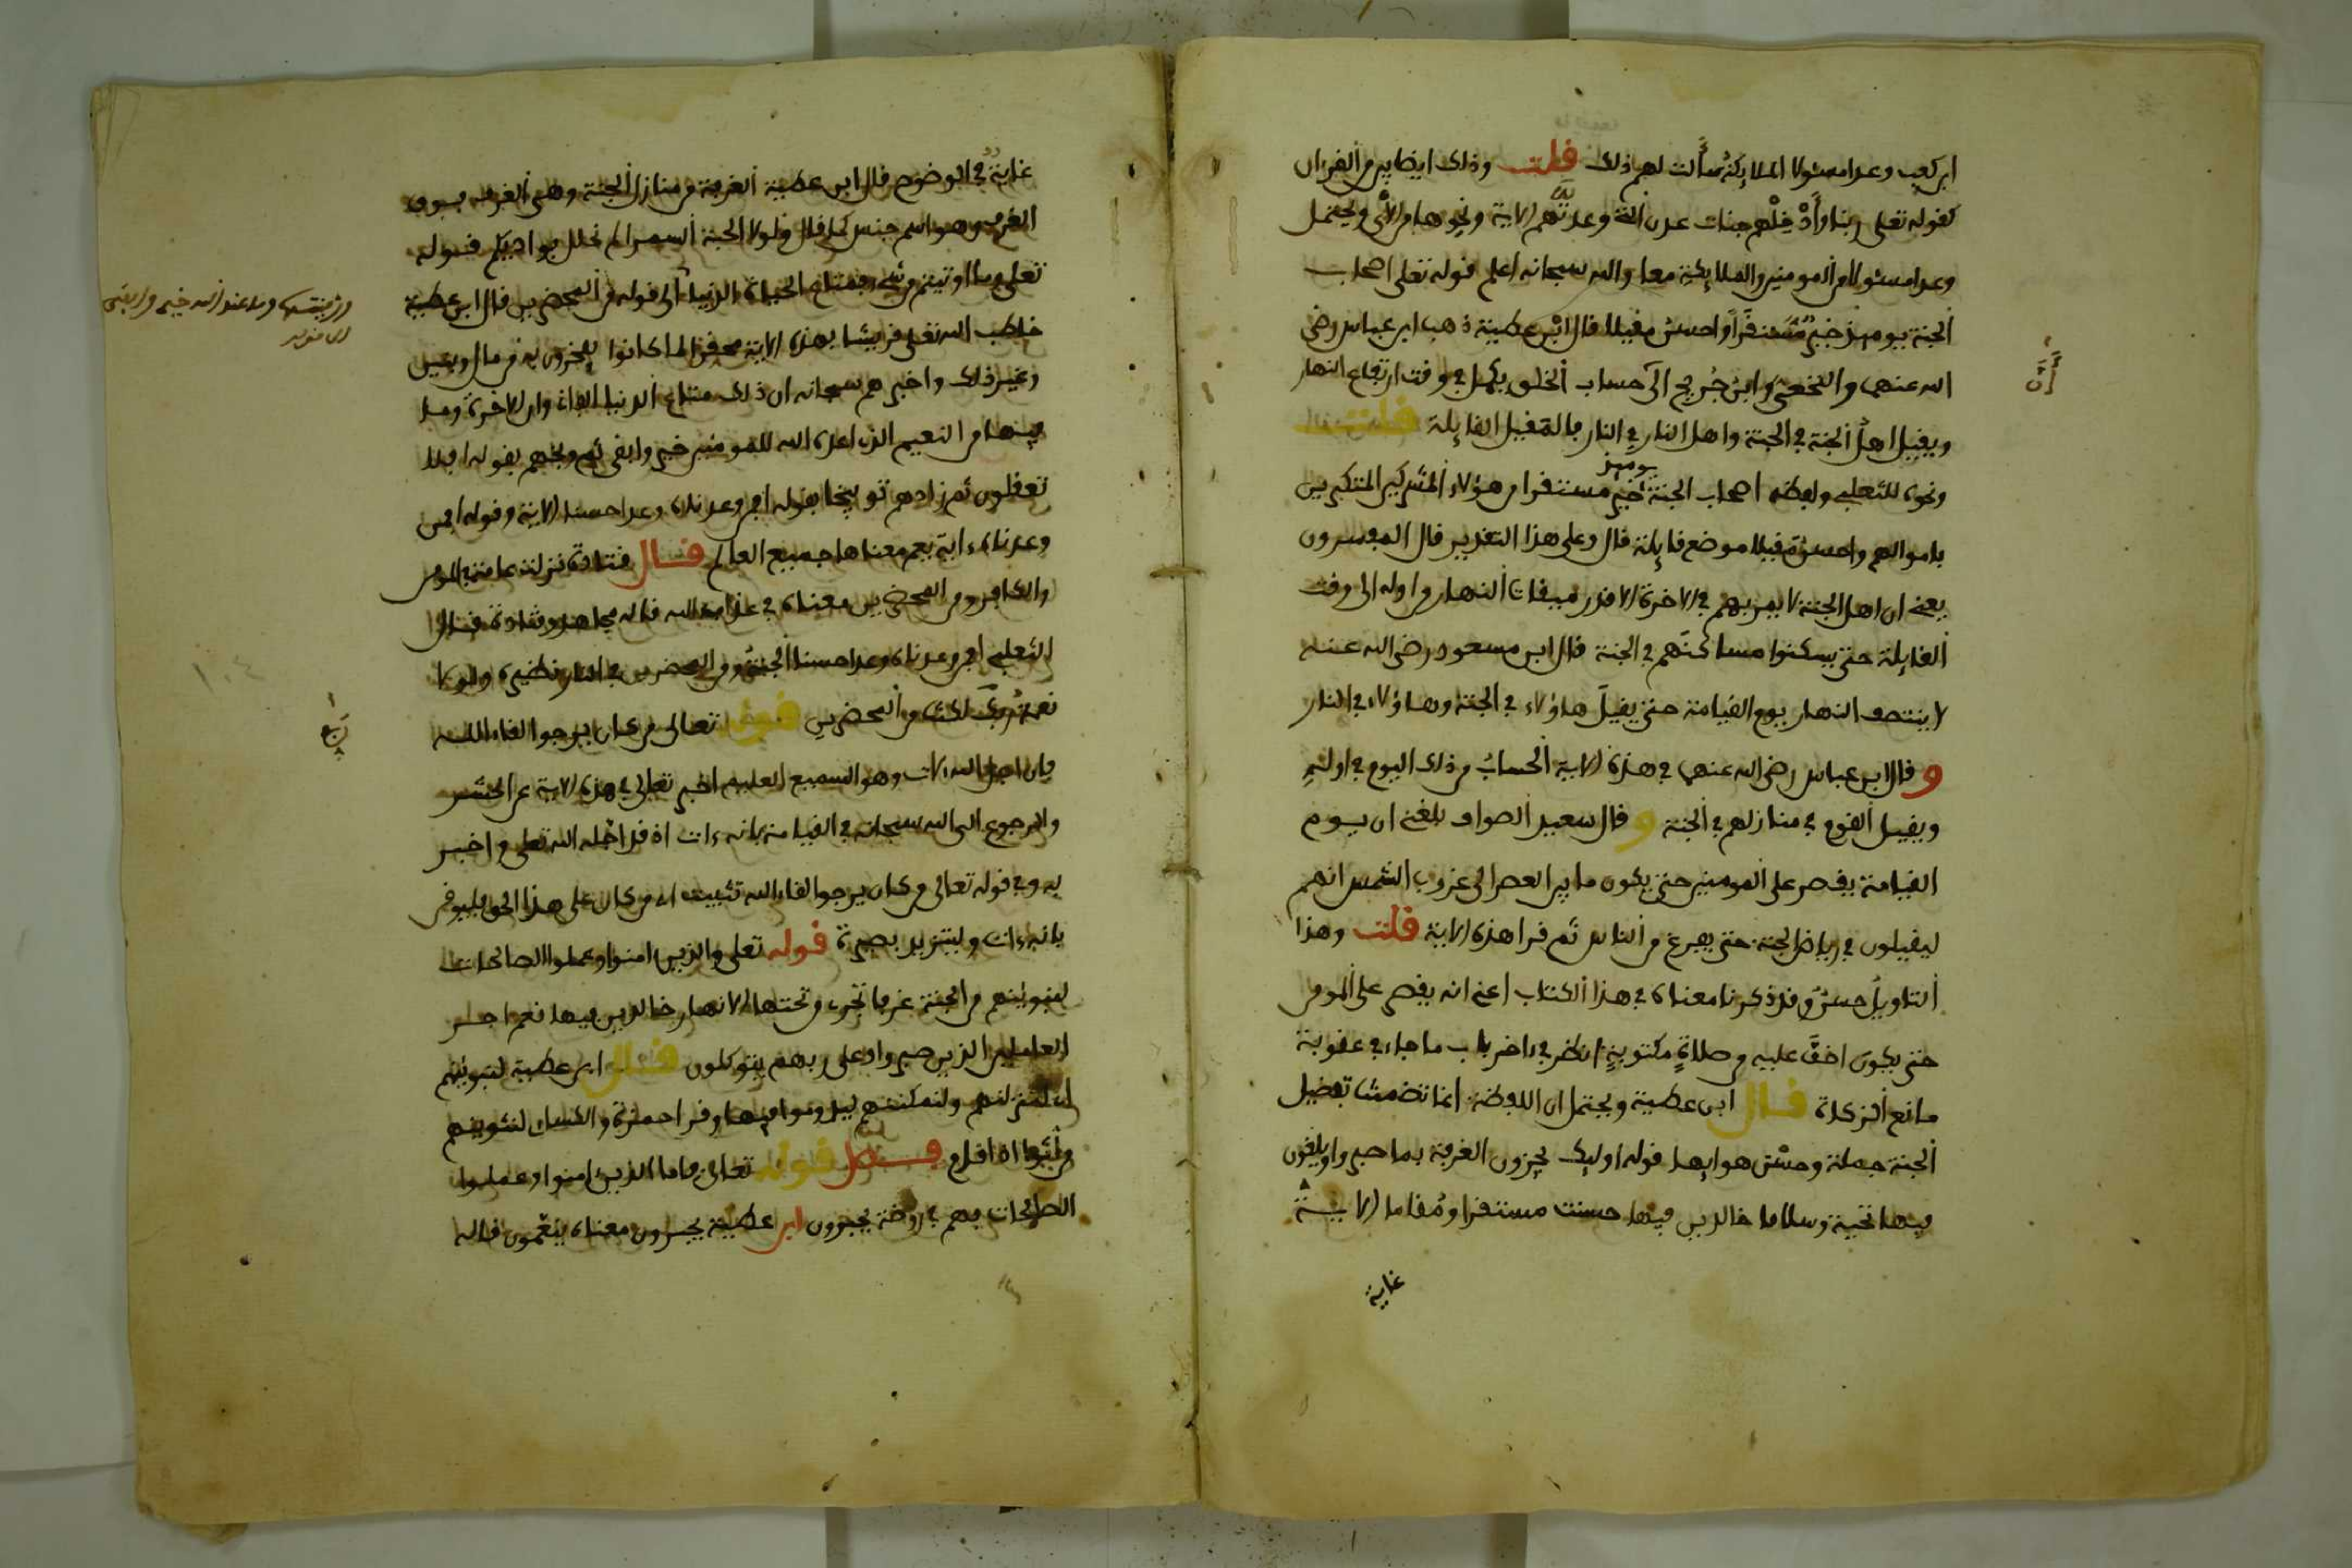 ابن كعب وعدا مسئولا الملايكة سألت لهم ذلك قلت وذلك ايضا بين من القرءان
كقوله تعلى ربنا وأدخلهم جنات عدن التي وعدتهم الاية ونحوها من الآي ويحتمل
وعدا مسئولا من المومنين والملايكة معا والله سبحانه اعلم قوله تعلى اصحاب
الجنة يوميذ خير مستقرا واحسن مقيلا قال ابن عطية ذهب ابن عباس رضي
أن
الله عنهما والنخعي وابن جريج الى حساب الخلق يكمل في وقت ارتفاع النهار
ويقيل اهل الجنة في الجنة واهل النار في النار فالمقيل القايلة قلت
ونحوه للثعلبي ولفظه اصحاب الجنة يوميذ خير مستقرا من هؤلاء المشركين المتكبرين
باموالهم واحسن مقيلا موضع قايلة قال وعلى هذا التقدير قال المفسرون
يعني ان اهل الجنة لا يمر بهم في الاخرة الا قدر ميقات النهار من اوله الى وقت
القايلة حتى يسكنوا مساكنهم في الجنة قال ابن مسعود رضي الله عنه
لا ينتصف النهار يوم القيامة حتى يقيل هاؤلاء في الجنة وهاؤلاء في النار
و قال ابن عباس رضي الله عنهما في هذه الاية الحساب من ذلك اليوم في اوله
ويقيل القوم في منازلهم في الجنة و قال سعيد الصواف بلغني ان يوم
القيامة يقصر على المومنين حتى يكون ما بين العصر الى غروب الشمس انهم
ليقيلون في رياض الجنة حتى يفرغ من الناس ثم قرا هذه الاية قلت وهذا
التاويل حسن وقد ذكرنا معناه في هذا الكتاب اعني انه يقصر على المومن
حتى يكون اخف عليه من صلاة مكتوبة انظر في ءاخر باب ما جاء في عقوبة
مانع الزكاة قال ابن عطية ويحتمل ان اللفظة انما تضمنت تفضيل
الجنة جملة وحسن هوايها قوله اوليك يجزون الغرفة بما صبروا ويلقون
فيها تحية وسلاما خالدين فيها حسنت مستقرا ومقاما الاية
غاية
غاية في الوضوح قال ابن عطية الغرفة من منازل الجنة وهي الغرف فوق
الغرف وهو اسم جنس كما قال ولولا الحبة السمراء لم نحلل بواديكم قوله
تعلى وما اوتيتم من شيء فمتاع الحياة الدنيا الى قوله من المحضرين قال ابن عطية
وزينتها وما عند الله خير وابقى
خاطب الله تعلى قريشا بهذه الاية محقرا لما كانوا يفخرون به من مال وبنين
وغير ذلك واخبرهم سبحانه ان ذلك متاع الدنيا الفاني وان الاخرة وما
فيها من النعيم الذي اعده الله للمومنين خير وابقى ثم وبخهم بقوله افلا
تعقلون ثم زادهم توبيخا بقوله افمن وعدناه وعدا حسنا الاية وقوله افمن
وعدناه ءاية يعم معناها جميع العالم قال قتادة نزلت عامة في المومن
والكافر ومن المحضرين معناه في عذاب الله قاله مجاهد وقتادة قال
الثعلبي افمن وعدناه وعدا حسنا الجنة ومن المحضرين في النار نظيره ولولا
نعمة ربي لكنت من المحضرين قوله تعالى من كان يرجوا لقاء الله
ربع
فان اجل الله لات وهو السميع العليم اخبر تعلى في هذه الاية عن الحشر
والرجوع الى الله سبحانه في القيامة بانه ءات اذ قد اجله الله تعلى واخبر
به وفي قوله تعالى من كان يرجوا لقاء الله تثبيت اي من كان على هذا الحق فليوقن
بانه ءات وليتزيد بصيرة قوله تعلى والذين امنوا وعملوا الصالحات
لنبوينهم من الجنة غرفا تجري من تحتها الانهار خالدين فيها نعم اجر
العاملين الذين صبروا وعلى ربهم يتوكلون قال ابن عطية لنبوينهم
اي لننزلنهم ولنمكننهم ليدوموا فيها وقرا حمزة والكساي لنثوينهم
من اثوى اذا اقام فصل قوله تعالى فاما الذين امنوا وعملوا
الصالحات فهم في روضة يحبرون ابن عطية يحبرون معناه ينعمون قاله
١٠٤